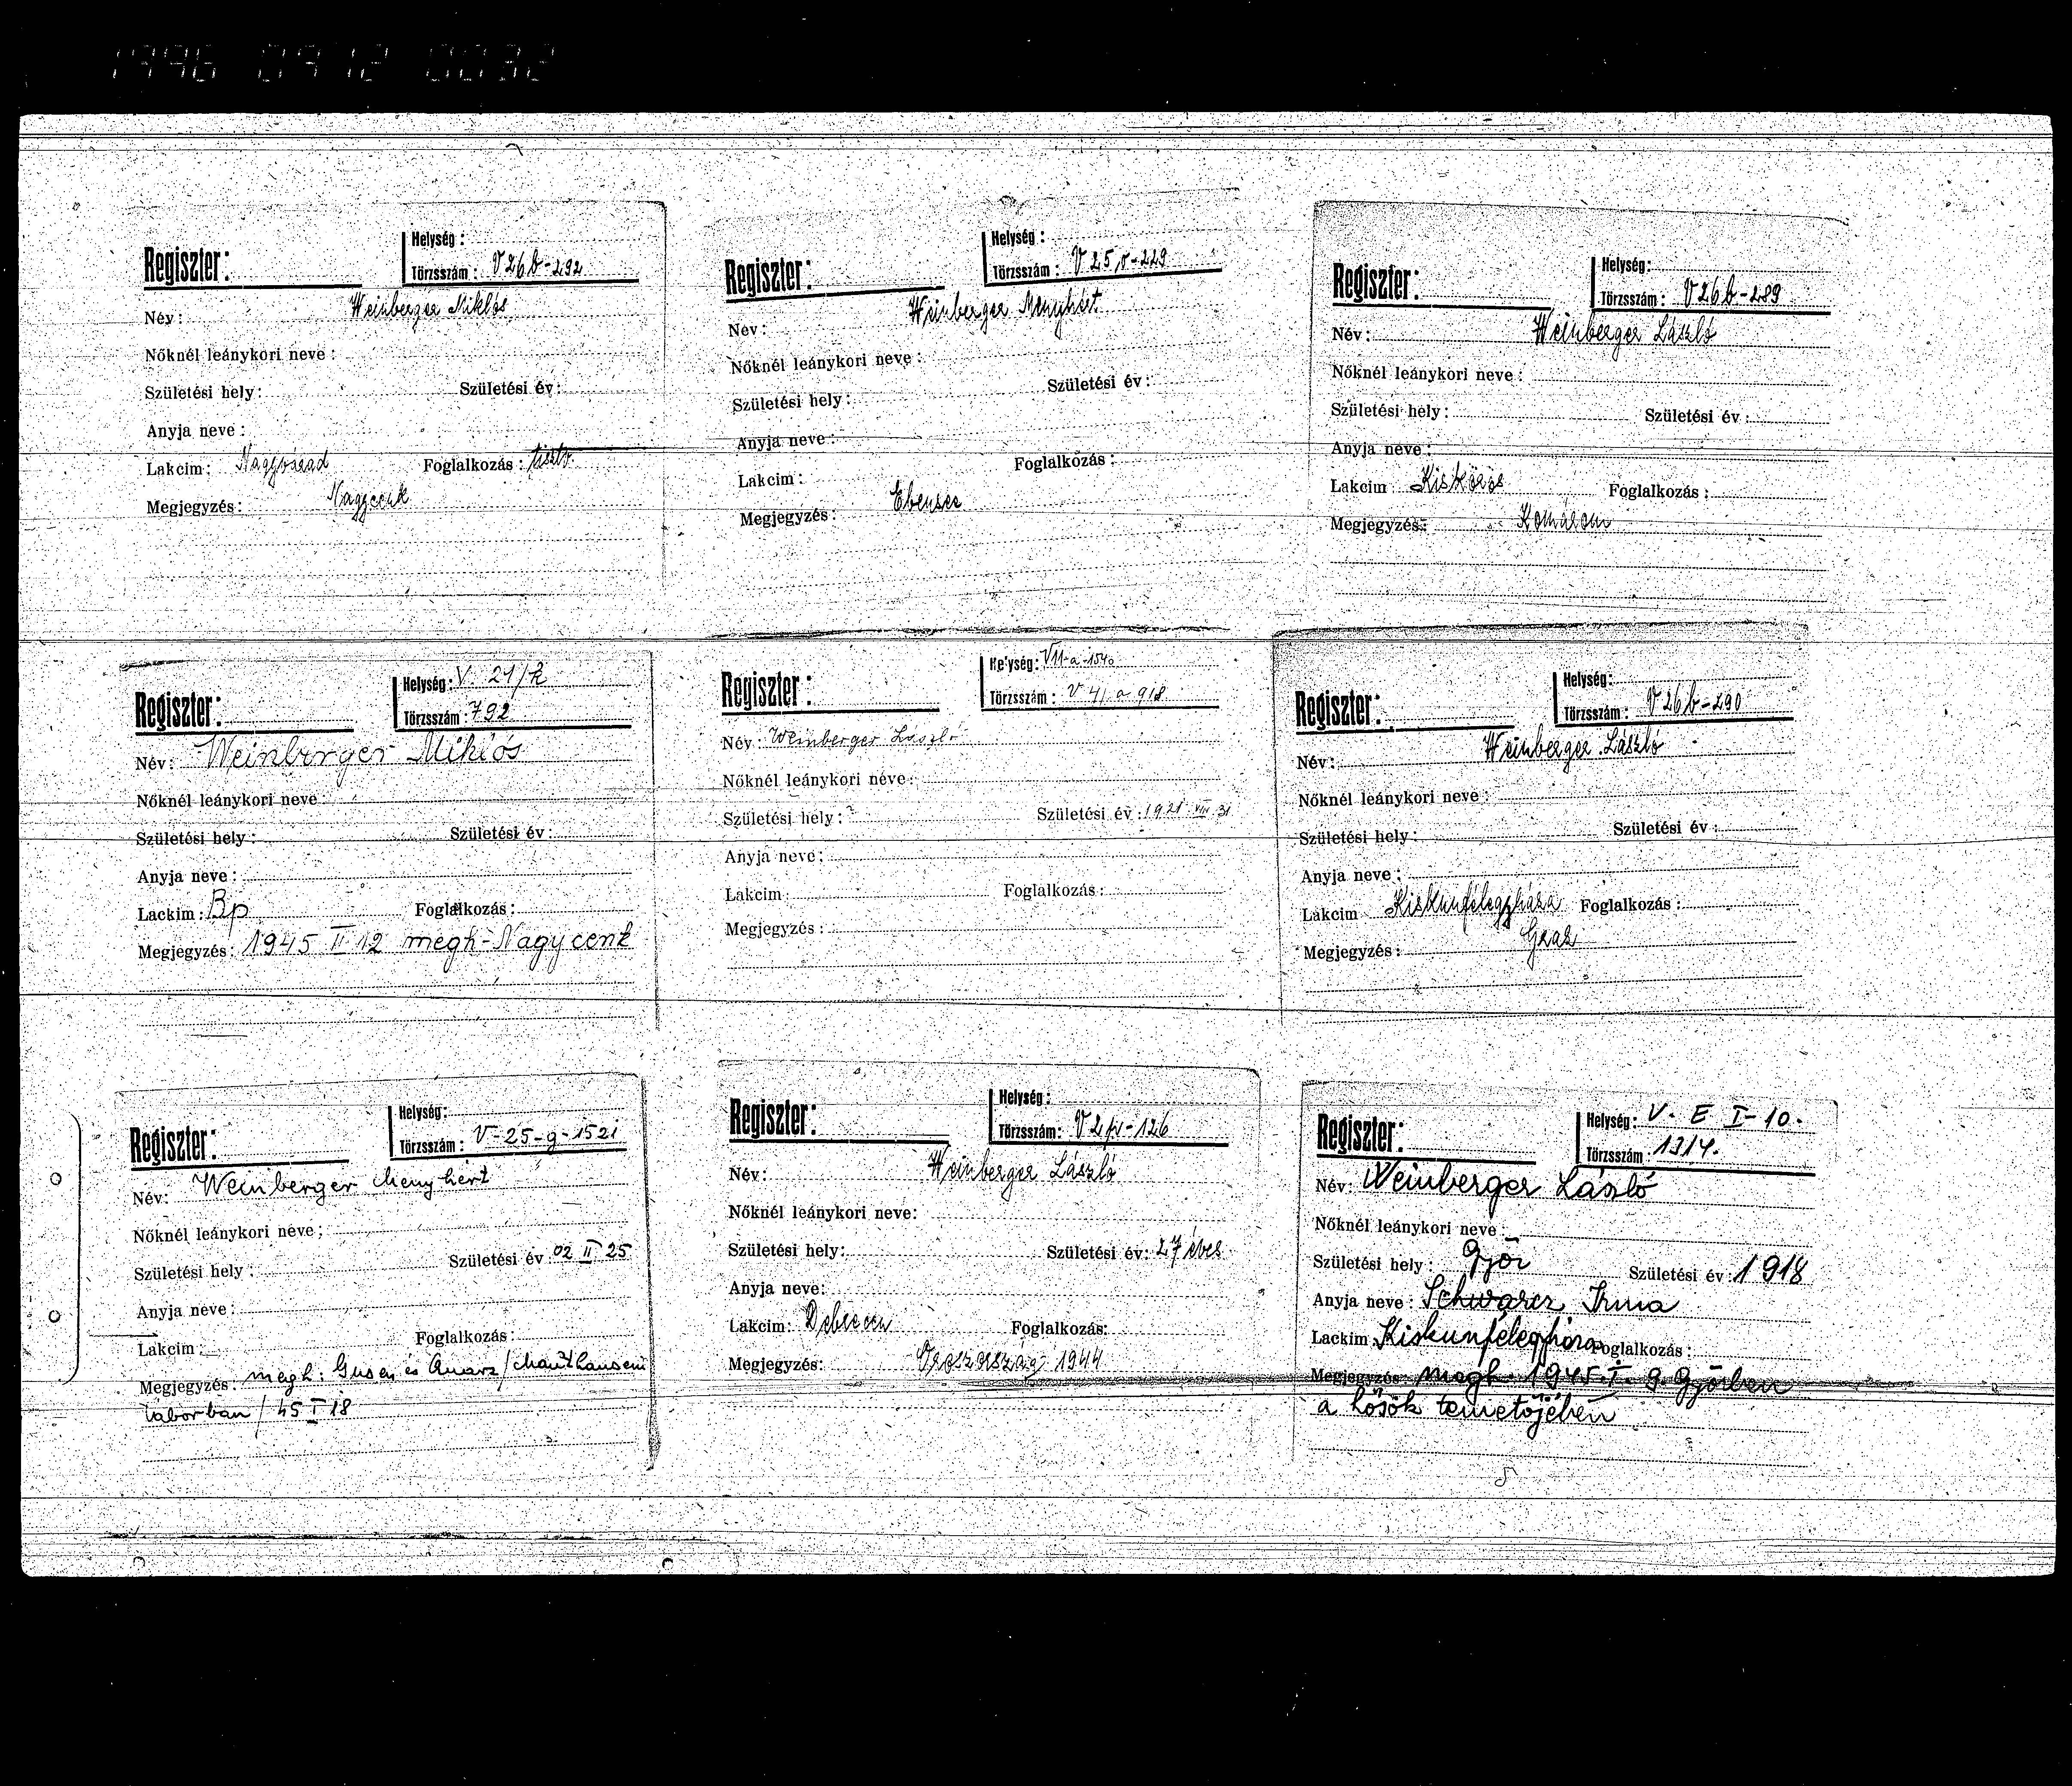 1996 0912 0032
Regiszter:
Helység:
Törzsszám: V26b-292
Név: Weinberger Miklós
Nőknél leánykori neve:
Születési hely: Születési év:
Anyja neve:
Lakcim: Nagyvarad Foglalkozás: tisztv.
Megjegyzés: Nagycenk
Regiszter:
Helység:
Törzsszám: -229
Név: Weinberger Menyhért
Nőknél leánykori neve:
Születési hely: Születési év:
Anyja neve:
Lakcim: Foglalkozás:
Megjegyzés: Ebensee
Regiszter:
Helység:
Törzsszám: V26b-289
Név: Weinberger László
Nőknél leánykori neve:
Születési hely: Születési év:
Anyja neve:
Lakcim Kiskőrös Foglalkozás:
Megjegyzés: Komárom
Regiszter:
Helység: V. 21/k
Törzsszám: 792
Név: Weinberger Miklós
Nőknél leánykori neve
Születési hely: Születési év:
Anyja neve:
Lackim: Bp Foglalkozás:
Megjegyzés: 1945 II 12 megh-Nagycenk
Regiszter:
Helység: VII-a-1540
Törzsszám: V 41 a 918
Név: Weinberger László
Nőknél leánykori neve:
Születési hely: Születési év: 1921 VIII 31
Anyja neve:
Lakcim: Foglalkozás:
Megjegyzés:
Regiszter:
Helység:
Törzsszám: V26b-290
Név: Weinberger László
Nőknél leánykori neve:
Születési hely: Születési év:
Anyja neve:
Lakcim Kiskunfélegyháza Foglalkozás:
Megjegyzés: Graz
Regiszter:
Helység:
Törzsszám: V-25-g-1521
Név: Weinberger Menyhért
Nőknél leánykori neve:
Születési hely: Születési év: 02 II 25
Anyja neve:
Lakcim: Foglalkozás:
Megjegyzés: megh: Gusen és Quarz /Mauthauseni
táborban/ 45 I 18
Regiszter:
Helység:
Törzsszám: -126
Név: Weinberger László
Nőknél leánykori neve:
Születési hely: Születési év: 27 éves
Anyja neve:
Lakcim: Debrecen Foglalkozás:
Megjegyzés: Oroszország 1944
Regiszter:
Helység: V. E I-10.
Törzsszám: 1314.
Név: Weinberger László
Nőknél leánykori neve:
Születési hely: Győr Születési év: 1918
Anyja neve: Schwarcz Irma
Lackim Kiskunfélegyháza Foglalkozás:
Megjegyzés: megh. 1945. I. 9. Győrben
a hősök temetőjében